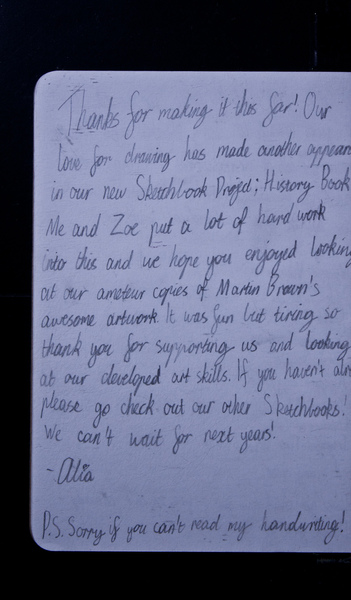 Thanks for making it this far! Our
love for drawing has made another appear
in our new Sketchbook Project; History Book
Me and Zoe put a lot of hard work
into this and we hope you enjoyed looking
at our amateur copies of Martin Brown's
awesome artwork It was fun but tiring so
thank you for supporting us and looking
at our developed art skills. If you haven't
please go check out our other Sketchbooks!
We can't wait for next years!
- Alia
P.S. Sorry if you can't read my handwriting!